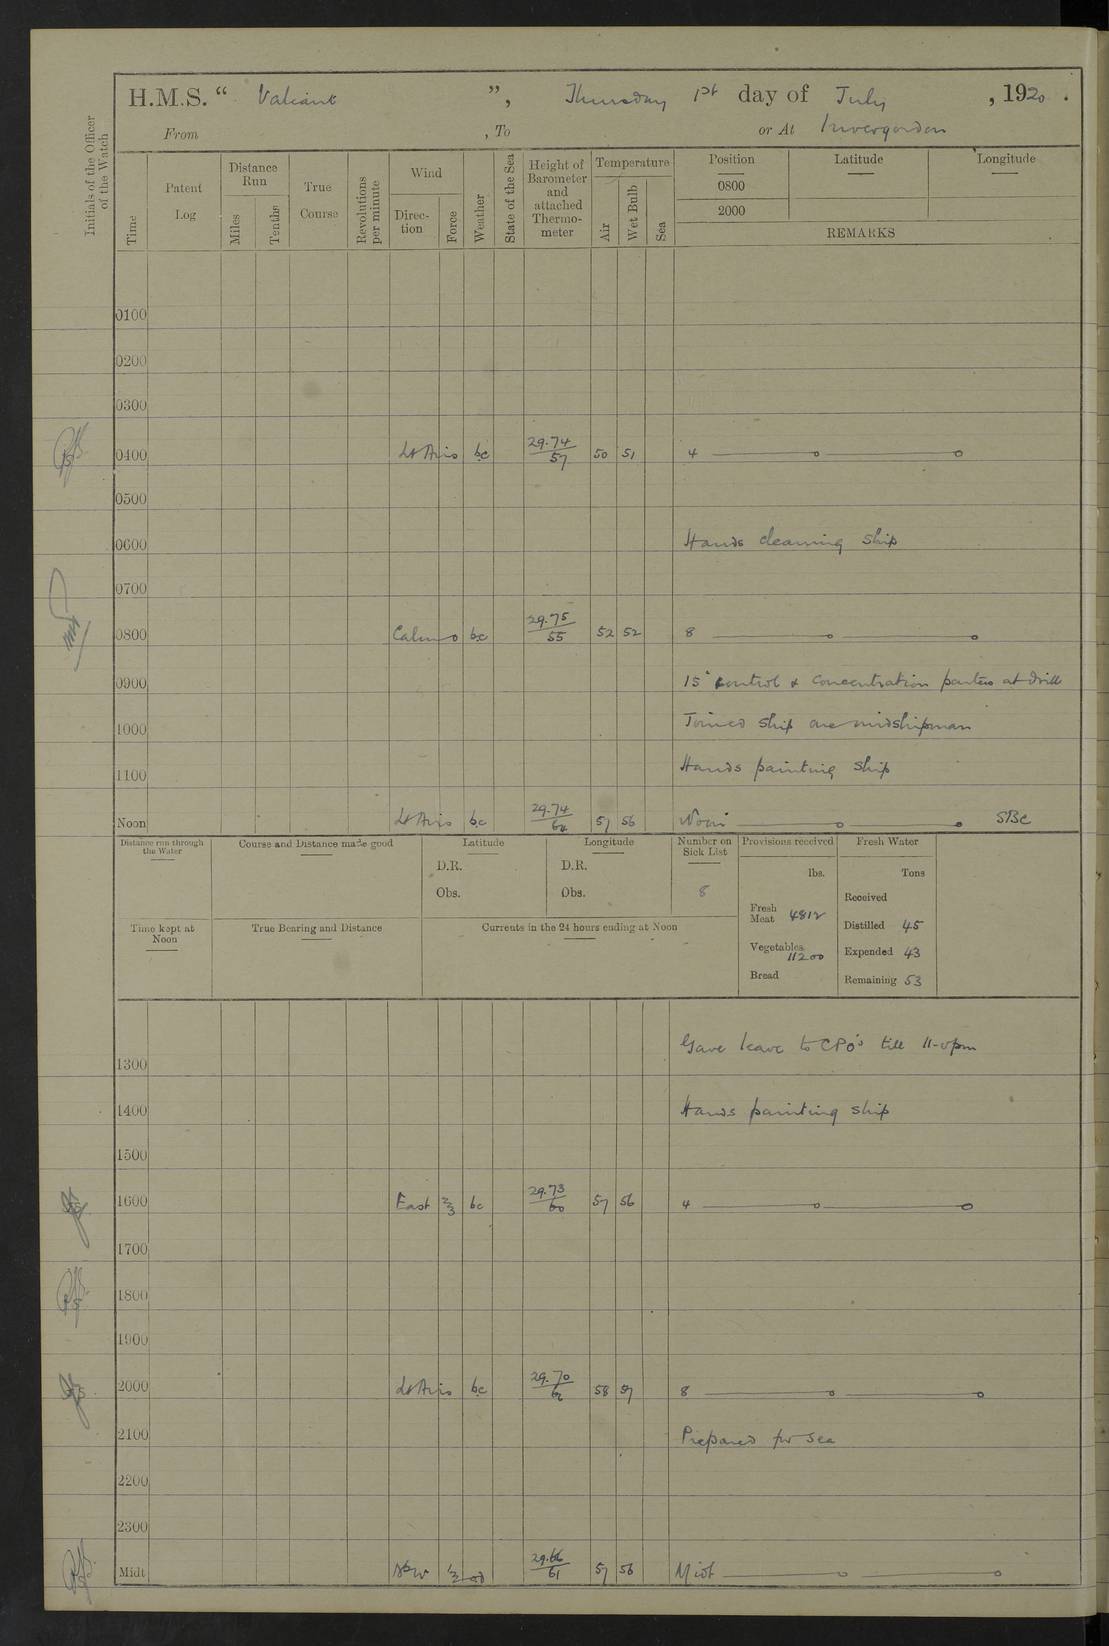 H.M.S. “ Valiant ”, Thursday 1st day of July , 1920 .
From , To or At Invergordon
Initials of the Officer of the Watch
Time
Patent Log
Distance Run
Miles
Tenths
True Course
Revolutions per minute
Wind
Direction
Force
Weather
State of the Sea
Height of Barometer and attached Thermometer
Temperature
Air
Wet Bulb
Sea
Position
Latitude
Longitude
0800
2000
REMARKS
0100
0200
0300
0400 Lt Airs bc 29.74/57 50 51 4
0500
0600 Hands cleaning ship
0700
0800 Calm o bc 29.75/55 52 52 8
0900 15" control & Concentration parties at drill
1000 Joined ship one midshipman
1100 Hands painting ship
Noon Lt Airs bc 29.74/64 57 56 Noon SBC
Distance run through the Water
Course and Distance made good
Latitude
D.R.
Obs.
Longitude
D.R.
Obs.
Number on Sick List
8
Provisions received
lbs.
Fresh Meat 4812
Vegetables 11200
Bread
Fresh Water
Tons
Received
Distilled 45
Expended 43
Remaining 53
Time kept at Noon
True Bearing and Distance
Currents in the 24 hours ending at Noon
Gave leave to CPO's till 11-0pm
1300
1400 Hands painting ship
1500
1600 East 2/3 bc 29.73/60 57 56 4
1700
1800
1900
2000 Lt Airs bc 29.70/62 58 57 8
2100 Prepared for sea
2200
2300
Midt 1/2 29.66/61 57 56 Midt